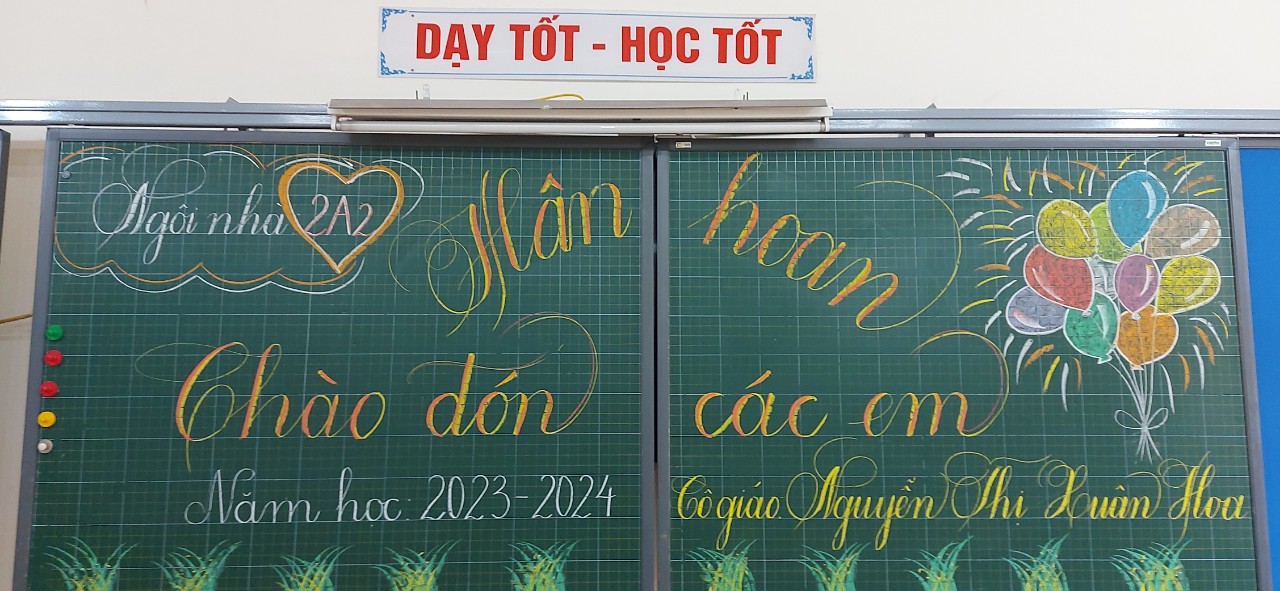 DẠY TỐT - HỌC TỐT
Ngôi nhà 2A2
Hân hoan
Chào đón các em
Năm học: 2023-2024
Cô giáo: Nguyễn Thị Xuân Hoa